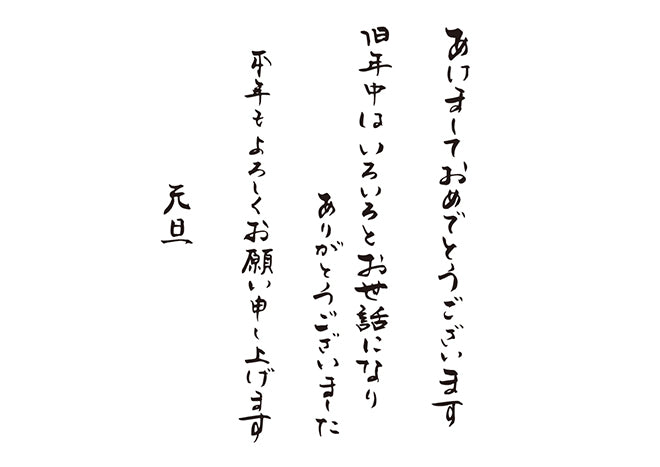 あけましておめでとうございます
旧年中はいろいろとお世話になり
ありがとうございました
本年もよろしくお願い申し上げます
元旦